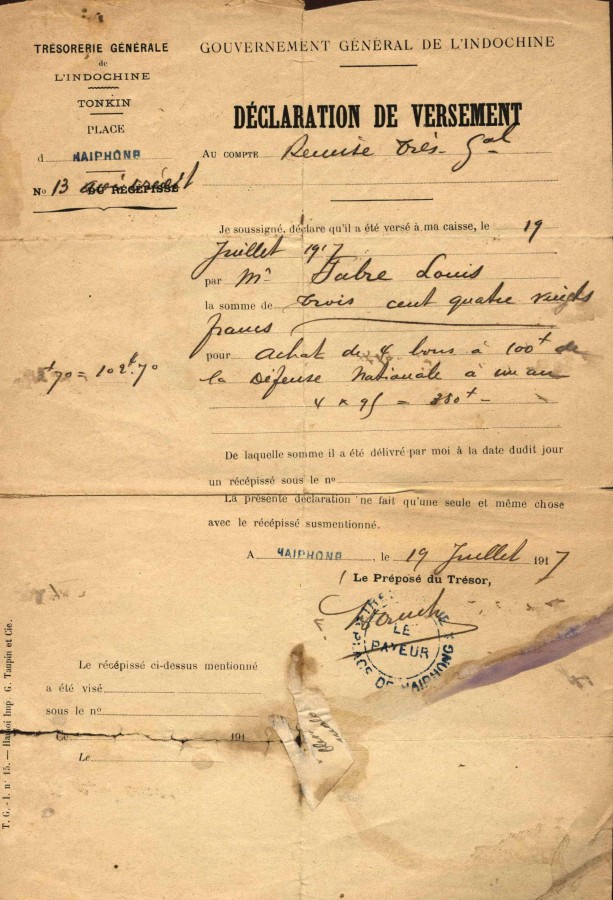 TRÉSORERIE GÉNÉRALE
de
L'INDOCHINE
TONKIN
PLACE
d HAIPHONG
No 13 DU RÉCÉPISSÉ
GOUVERNEMENT GÉNÉRAL DE L'INDOCHINE
DÉCLARATION DE VERSEMENT
AU COMPTE Remise Trés. Gal
Je soussigné, déclare qu'il a été versé à ma caisse, le 19
Juillet 1917
par Mr Fabre Louis
la somme de Trois cent quatre vingts
francs
pour achat de 4 bons à 100f de
la Défense Nationale à un an
4 x 95 = 380f -
70 = 102 70
De laquelle somme il a été délivré par moi à la date dudit jour
un récépissé sous le no
La présente déclaration ne fait qu'une seule et même chose
avec le récépissé susmentionné.
A HAIPHONG, le 19 Juillet 1917
Le Préposé du Trésor,
LE
PAYEUR
PLACE DE HAIPHONG
Le récépissé ci-dessus mentionné
a été visé
sous le no
Ce 191
Le
T. G. - I. no 15. — Hanoi Imp. G. Taupin et Cie.